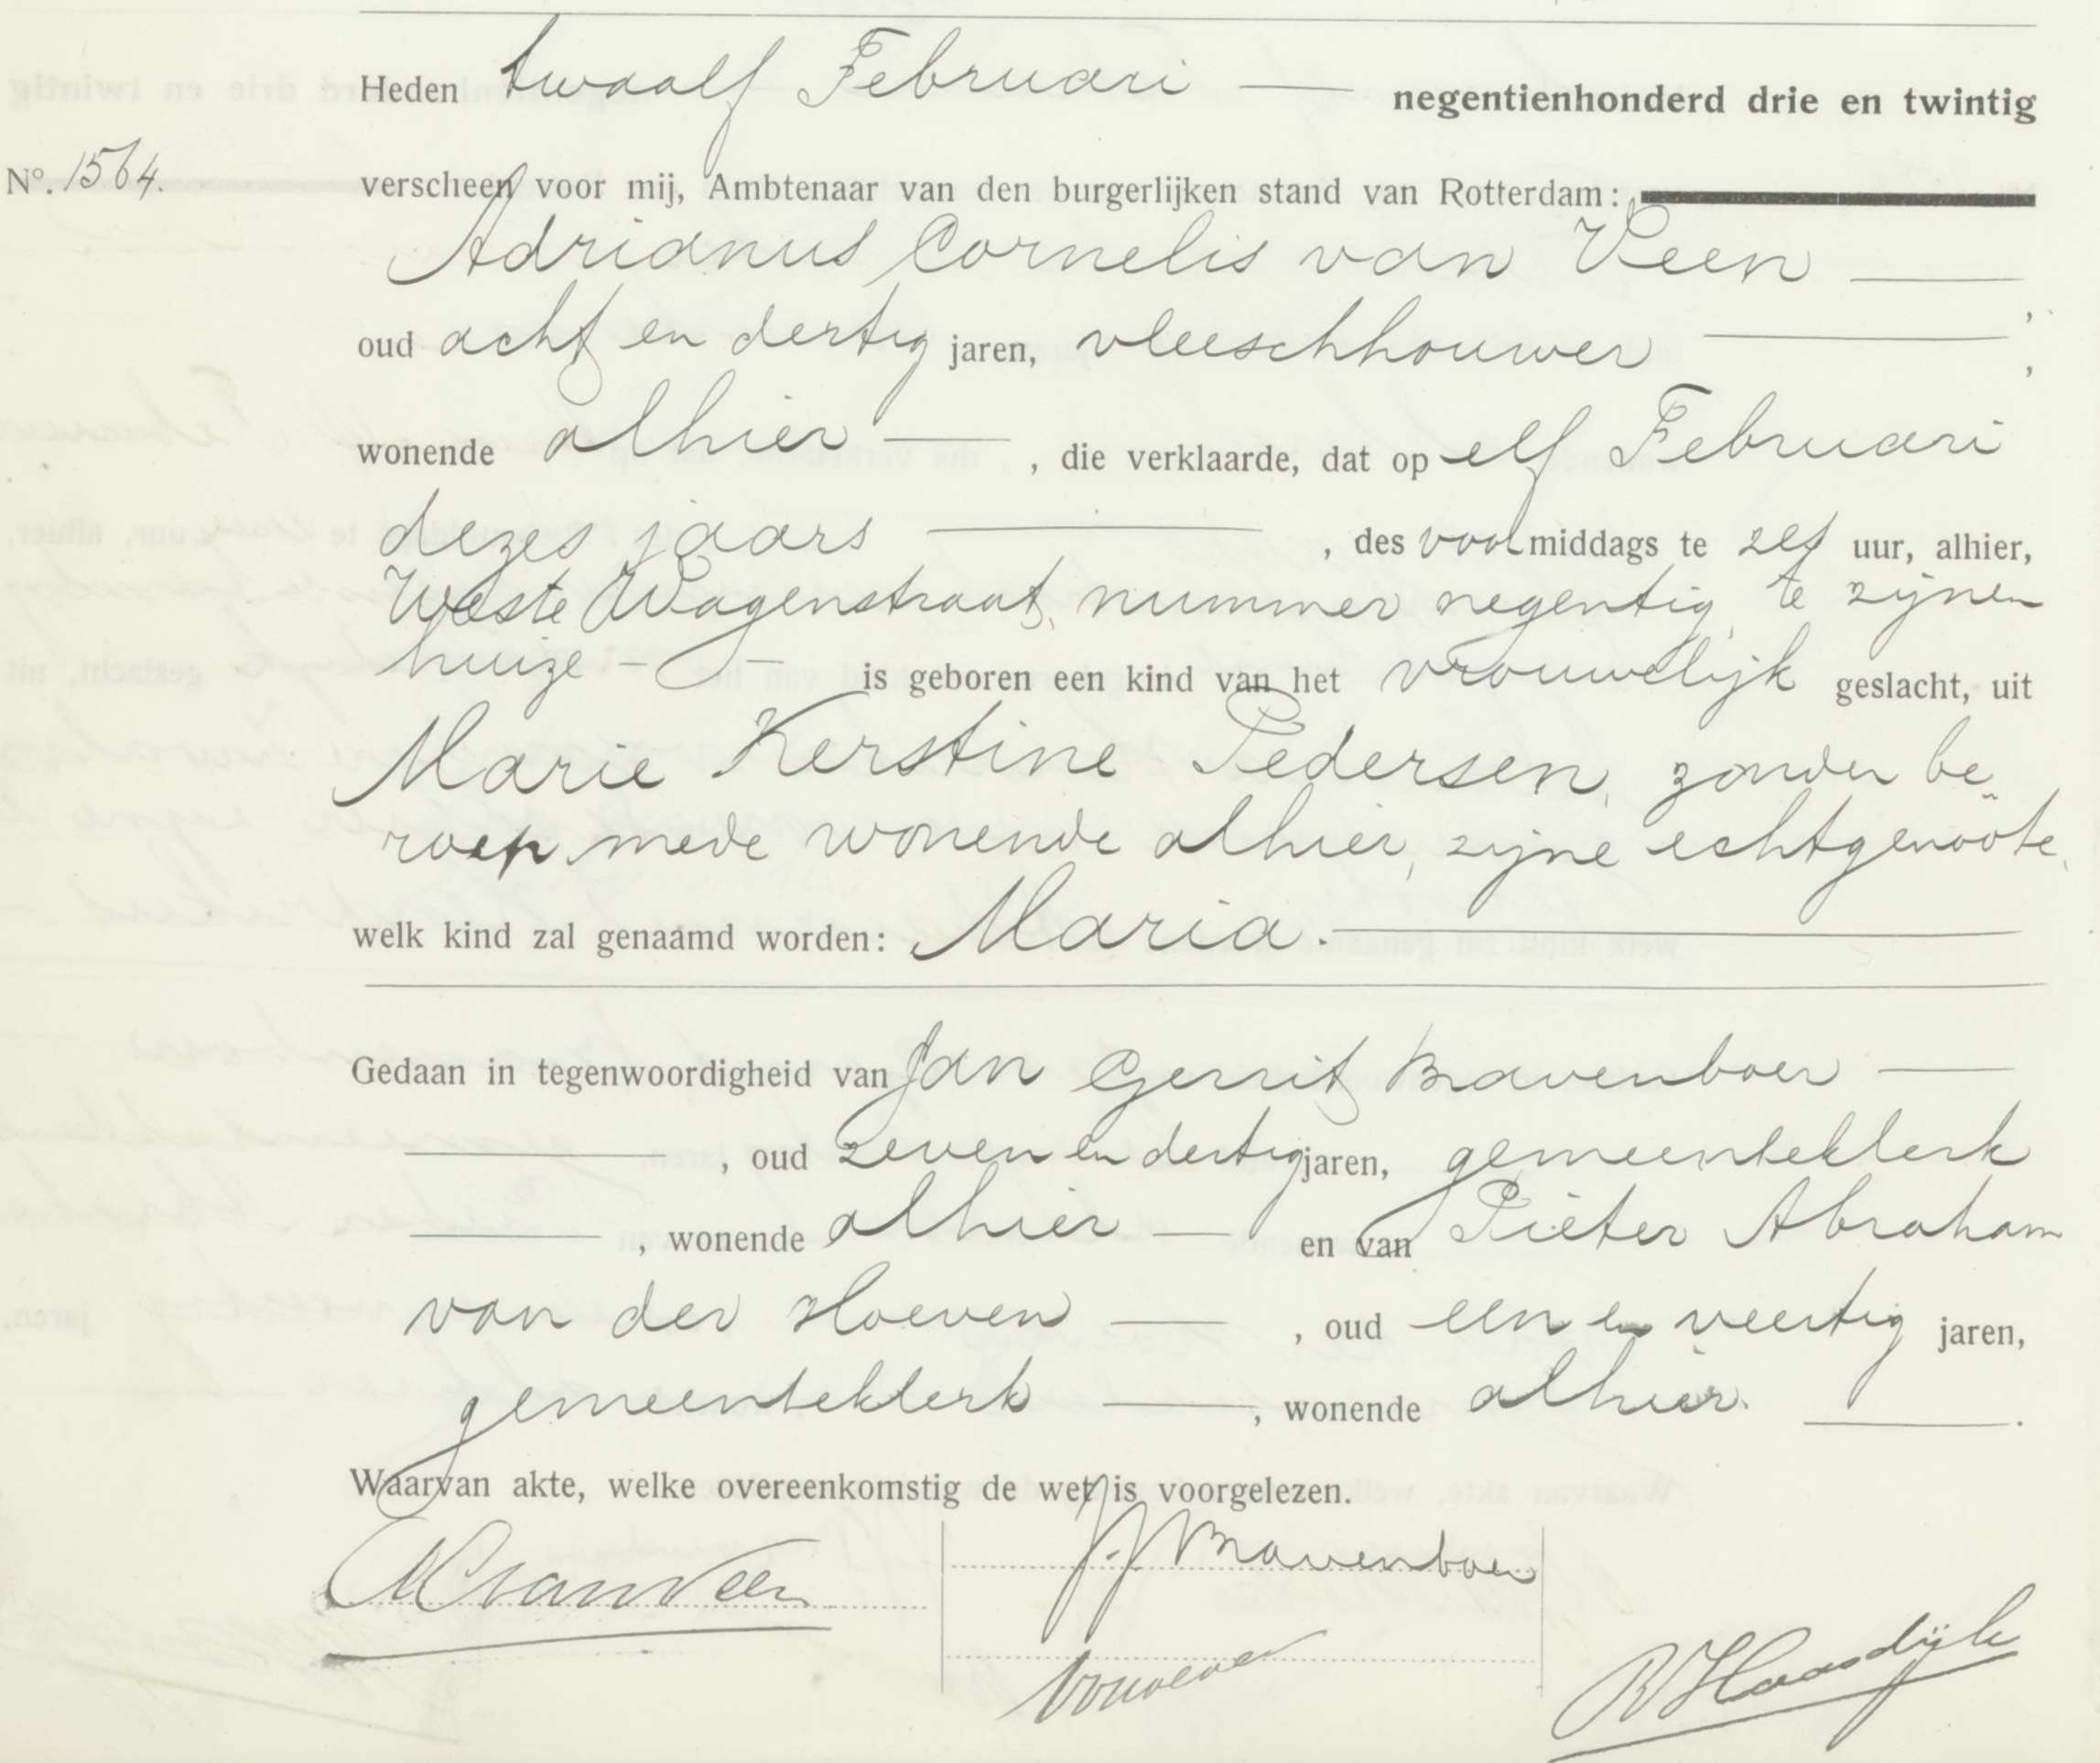 Heden twaalf Februari — negentienhonderd drie en twintig
No. 1564. verscheen voor mij, Ambtenaar van den burgerlijken stand van Rotterdam:
Adrianus Cornelis van Veen —
oud acht en dertig jaren, vleeschhouwer — ;
wonende alhier — , die verklaarde, dat op elf Februari
dezes jaars — , des voormiddags te zes uur, alhier,
Weste Wagenstraat, nummer negentig, te zijnen
huize — is geboren een kind van het vrouwelijk geslacht, uit
Marie Kerstine Pedersen, zonder be
roep, mede wonende alhier, zijne echtgenoote,
welk kind zal genaamd worden: Maria. —
Gedaan in tegenwoordigheid van Jan Gerrit Bravenboer —
— , oud zeven en dertig jaren, gemeenteklerk
— , wonende alhier — en van Pieter Abraham
van der Hoeven — , oud een en veertig jaren,
gemeenteklerk — , wonende alhier. — .
Waarvan akte, welke overeenkomstig de wet is voorgelezen.
ACvanVeen
JGBravenboer